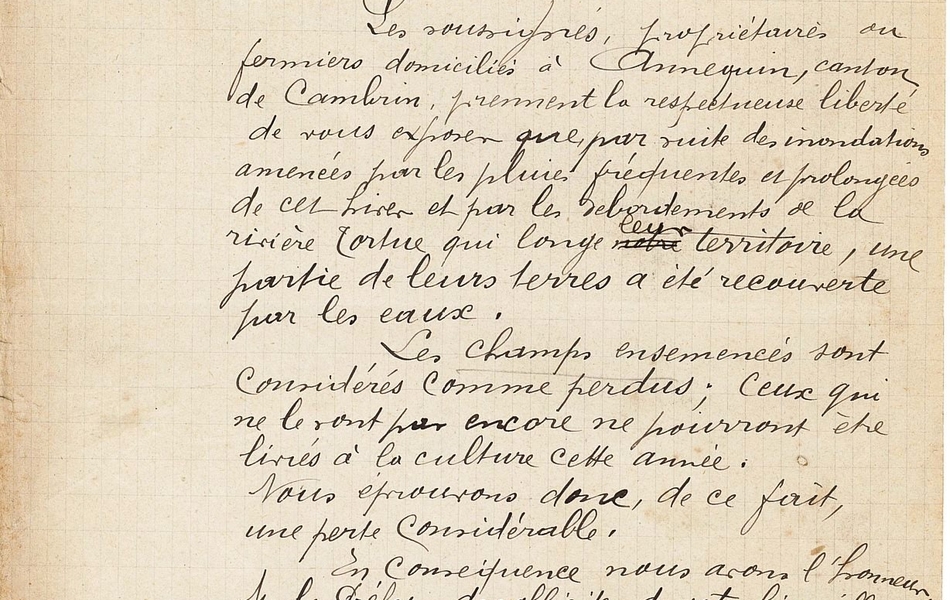 Les soussignés, propriétaires ou
fermiers domiciliés à Annequin, canton
de Cambrin, prennent la respectueuse liberté
de vous exposer que, par suite des inondations
amenées par les pluies fréquentes et prolongées
de cet hiver et par les débordements de la
rivière Tortue qui longe notre leur territoire, une
partie de leurs terres a été recouverte
par les eaux.
Les champs ensemencés sont
Considérés comme perdus ; Ceux qui
ne le sont pas encore ne pourront être
livrés à la culture cette année.
Nous éprouvons donc, de ce fait,
une perte Considérable.
En Conséquence nous avons l'honneur,